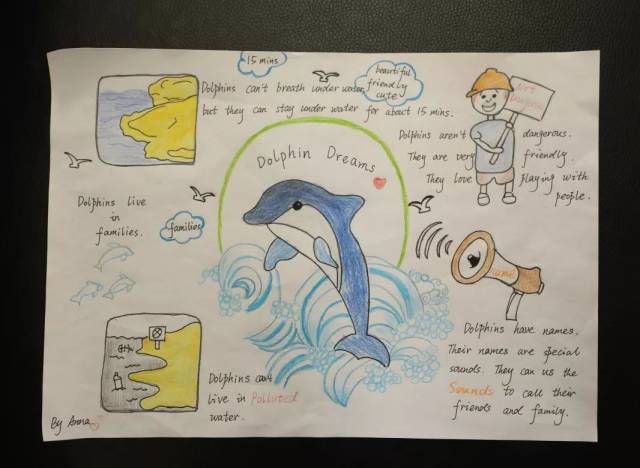 15 mins
Dolphins can't breath under water,
but they can stay under water for about 15 mins.
beautiful
friendly
cute
Not
Dangerous
Dolphins aren't dangerous.
They are very friendly.
They love playing with
people.
Dolphin Dreams
Dolphins live
in
families.
families
name
Dolphins have names.
Their names are special
sounds. They can us the
Sounds to call their
friends and family.
Dolphins can't
live in Polluted
water.
By Anna